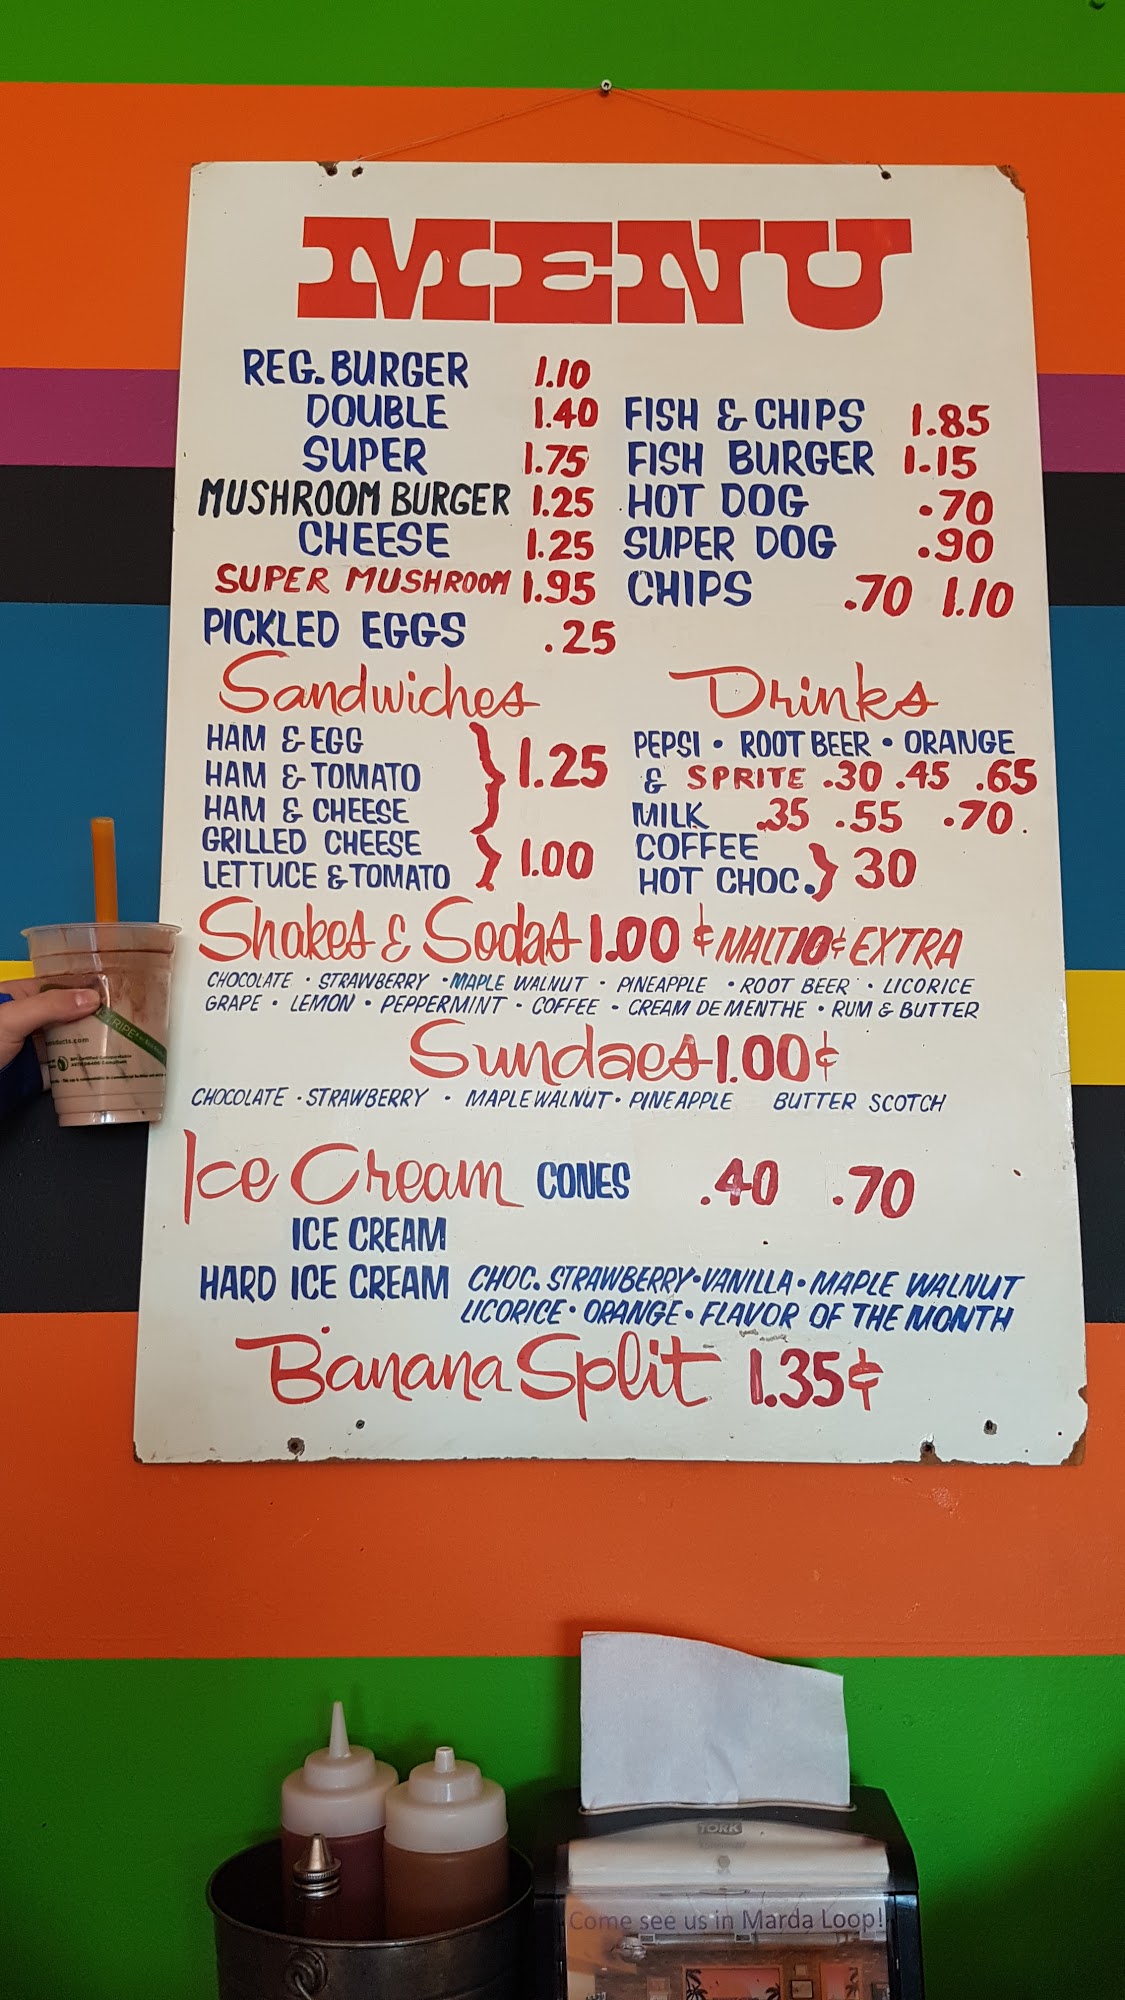 MENU
REG. BURGER 1.10
DOUBLE 1.40
SUPER 1.75
MUSHROOM BURGER 1.25
CHEESE 1.25
SUPER MUSHROOM 1.95
PICKLED EGGS .25
FISH & CHIPS 1.85
FISH BURGER 1.15
HOT DOG .70
SUPER DOG .90
CHIPS .70 1.10
Sandwiches
HAM & EGG
HAM & TOMATO 1.25
HAM & CHEESE
GRILLED CHEESE
LETTUCE & TOMATO 1.00
Drinks
PEPSI • ROOT BEER • ORANGE
& SPRITE .30 .45 .65
MILK .35 .55 .70.
COFFEE
HOT CHOC. 30
Shakes & Sodas 1.00 ¢ MALT 10¢ EXTRA
CHOCOLATE • STRAWBERRY • MAPLE WALNUT • PINEAPPLE • ROOT BEER • LICORICE
GRAPE • LEMON • PEPPERMINT • COFFEE • CREAM DE MENTHE • RUM & BUTTER
Sundaes 1.00¢
CHOCOLATE • STRAWBERRY • MAPLE WALNUT • PINEAPPLE BUTTER SCOTCH
Ice Cream CONES .40 .70
ICE CREAM
HARD ICE CREAM CHOC. STRAWBERRY • VANILLA • MAPLE WALNUT
LICORICE • ORANGE • FLAVOR OF THE MONTH
Banana Split 1.35¢
TORK
Come see us in Marda Loop!